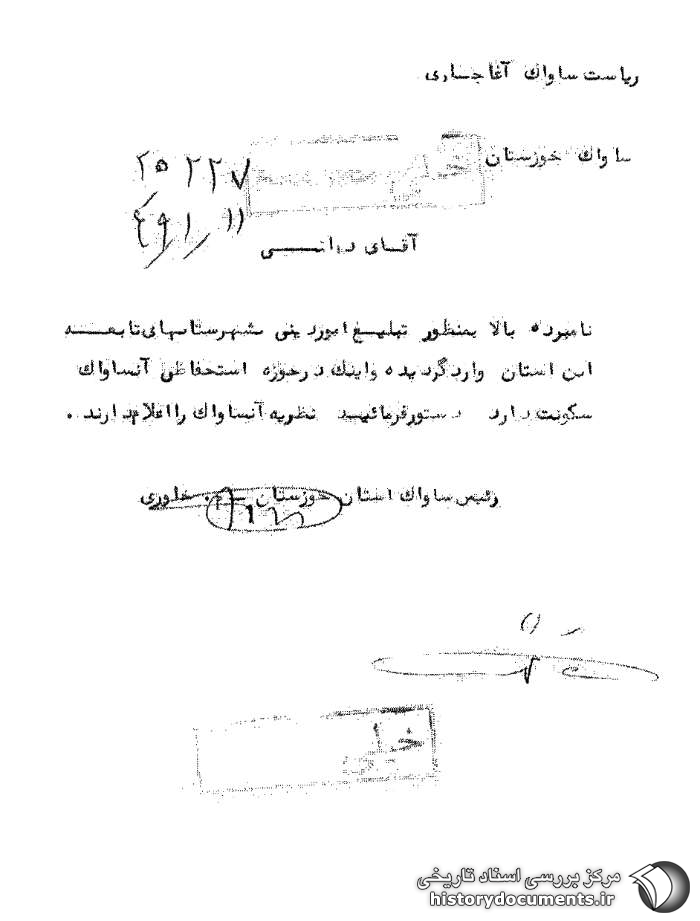 ریاست ساواک آغاجاری
ساواک خوزستان
۲۵۲۲۷
۴۹/۱/۱۱
آقای دوانـــی
نامبرده بالا بمنظور تبلیـغ اموردینی بشهرستانهای تابعـــه
این استان واردگردیده واینک درحوزه استحفاظی آنساواک
سکونت دارد دستورفرمائیـد نظریه آنساواک را اعلام دارند .
رئیس ساواک استان خوزستان ــ م . خاوری
مرکز بررسی اسناد تاریخی
historydocuments.ir